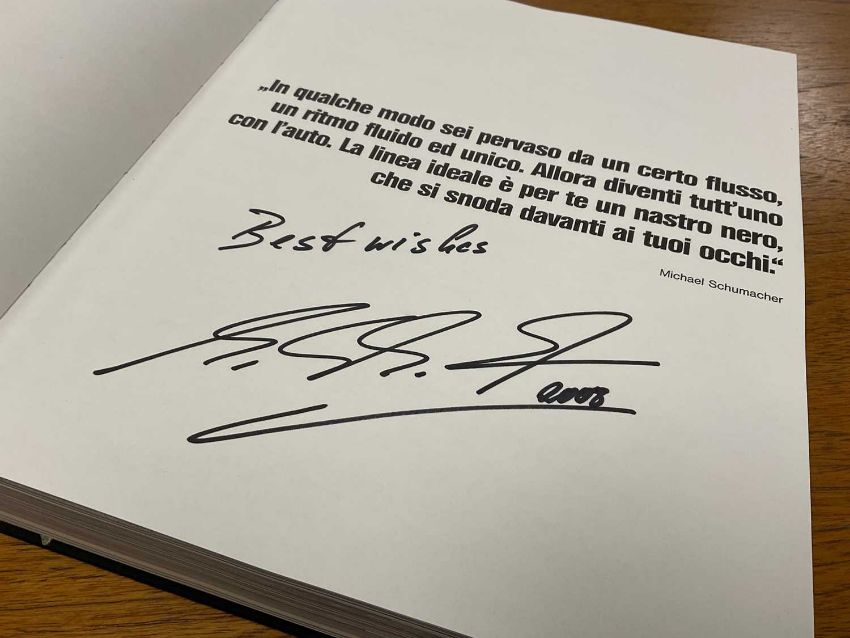 „In qualche modo sei pervaso da un certo flusso,
un ritmo fluido ed unico. Allora diventi tutt’uno
con l’auto. La linea ideale è per te un nastro nero,
che si snoda davanti ai tuoi occhi.“
Michael Schumacher
Best wishes
2003